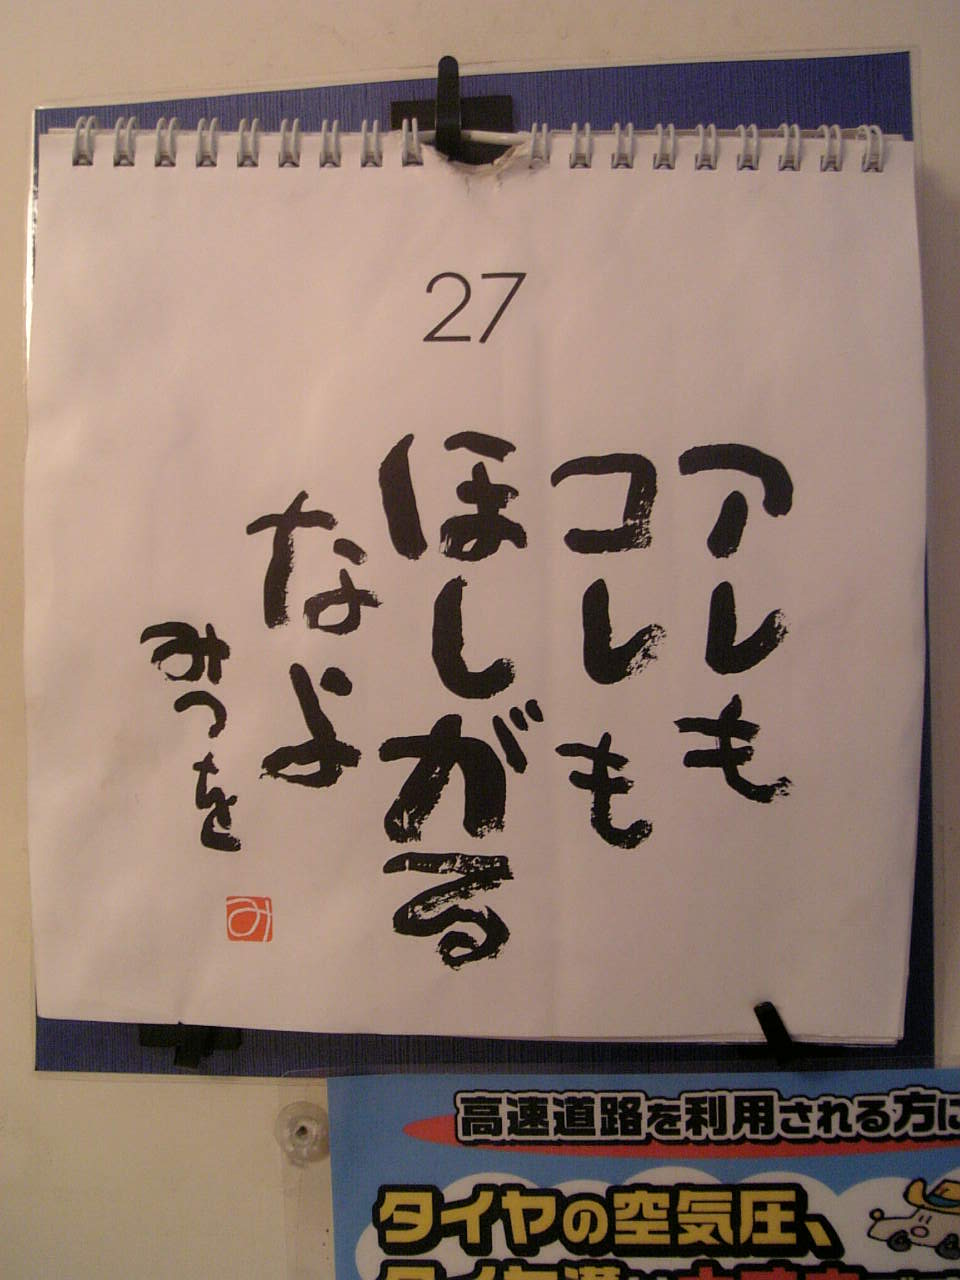 27
アレも
コレも
ほしがる
なよ
みつを
み
高速道路を利用される方に
タイヤの空気圧、